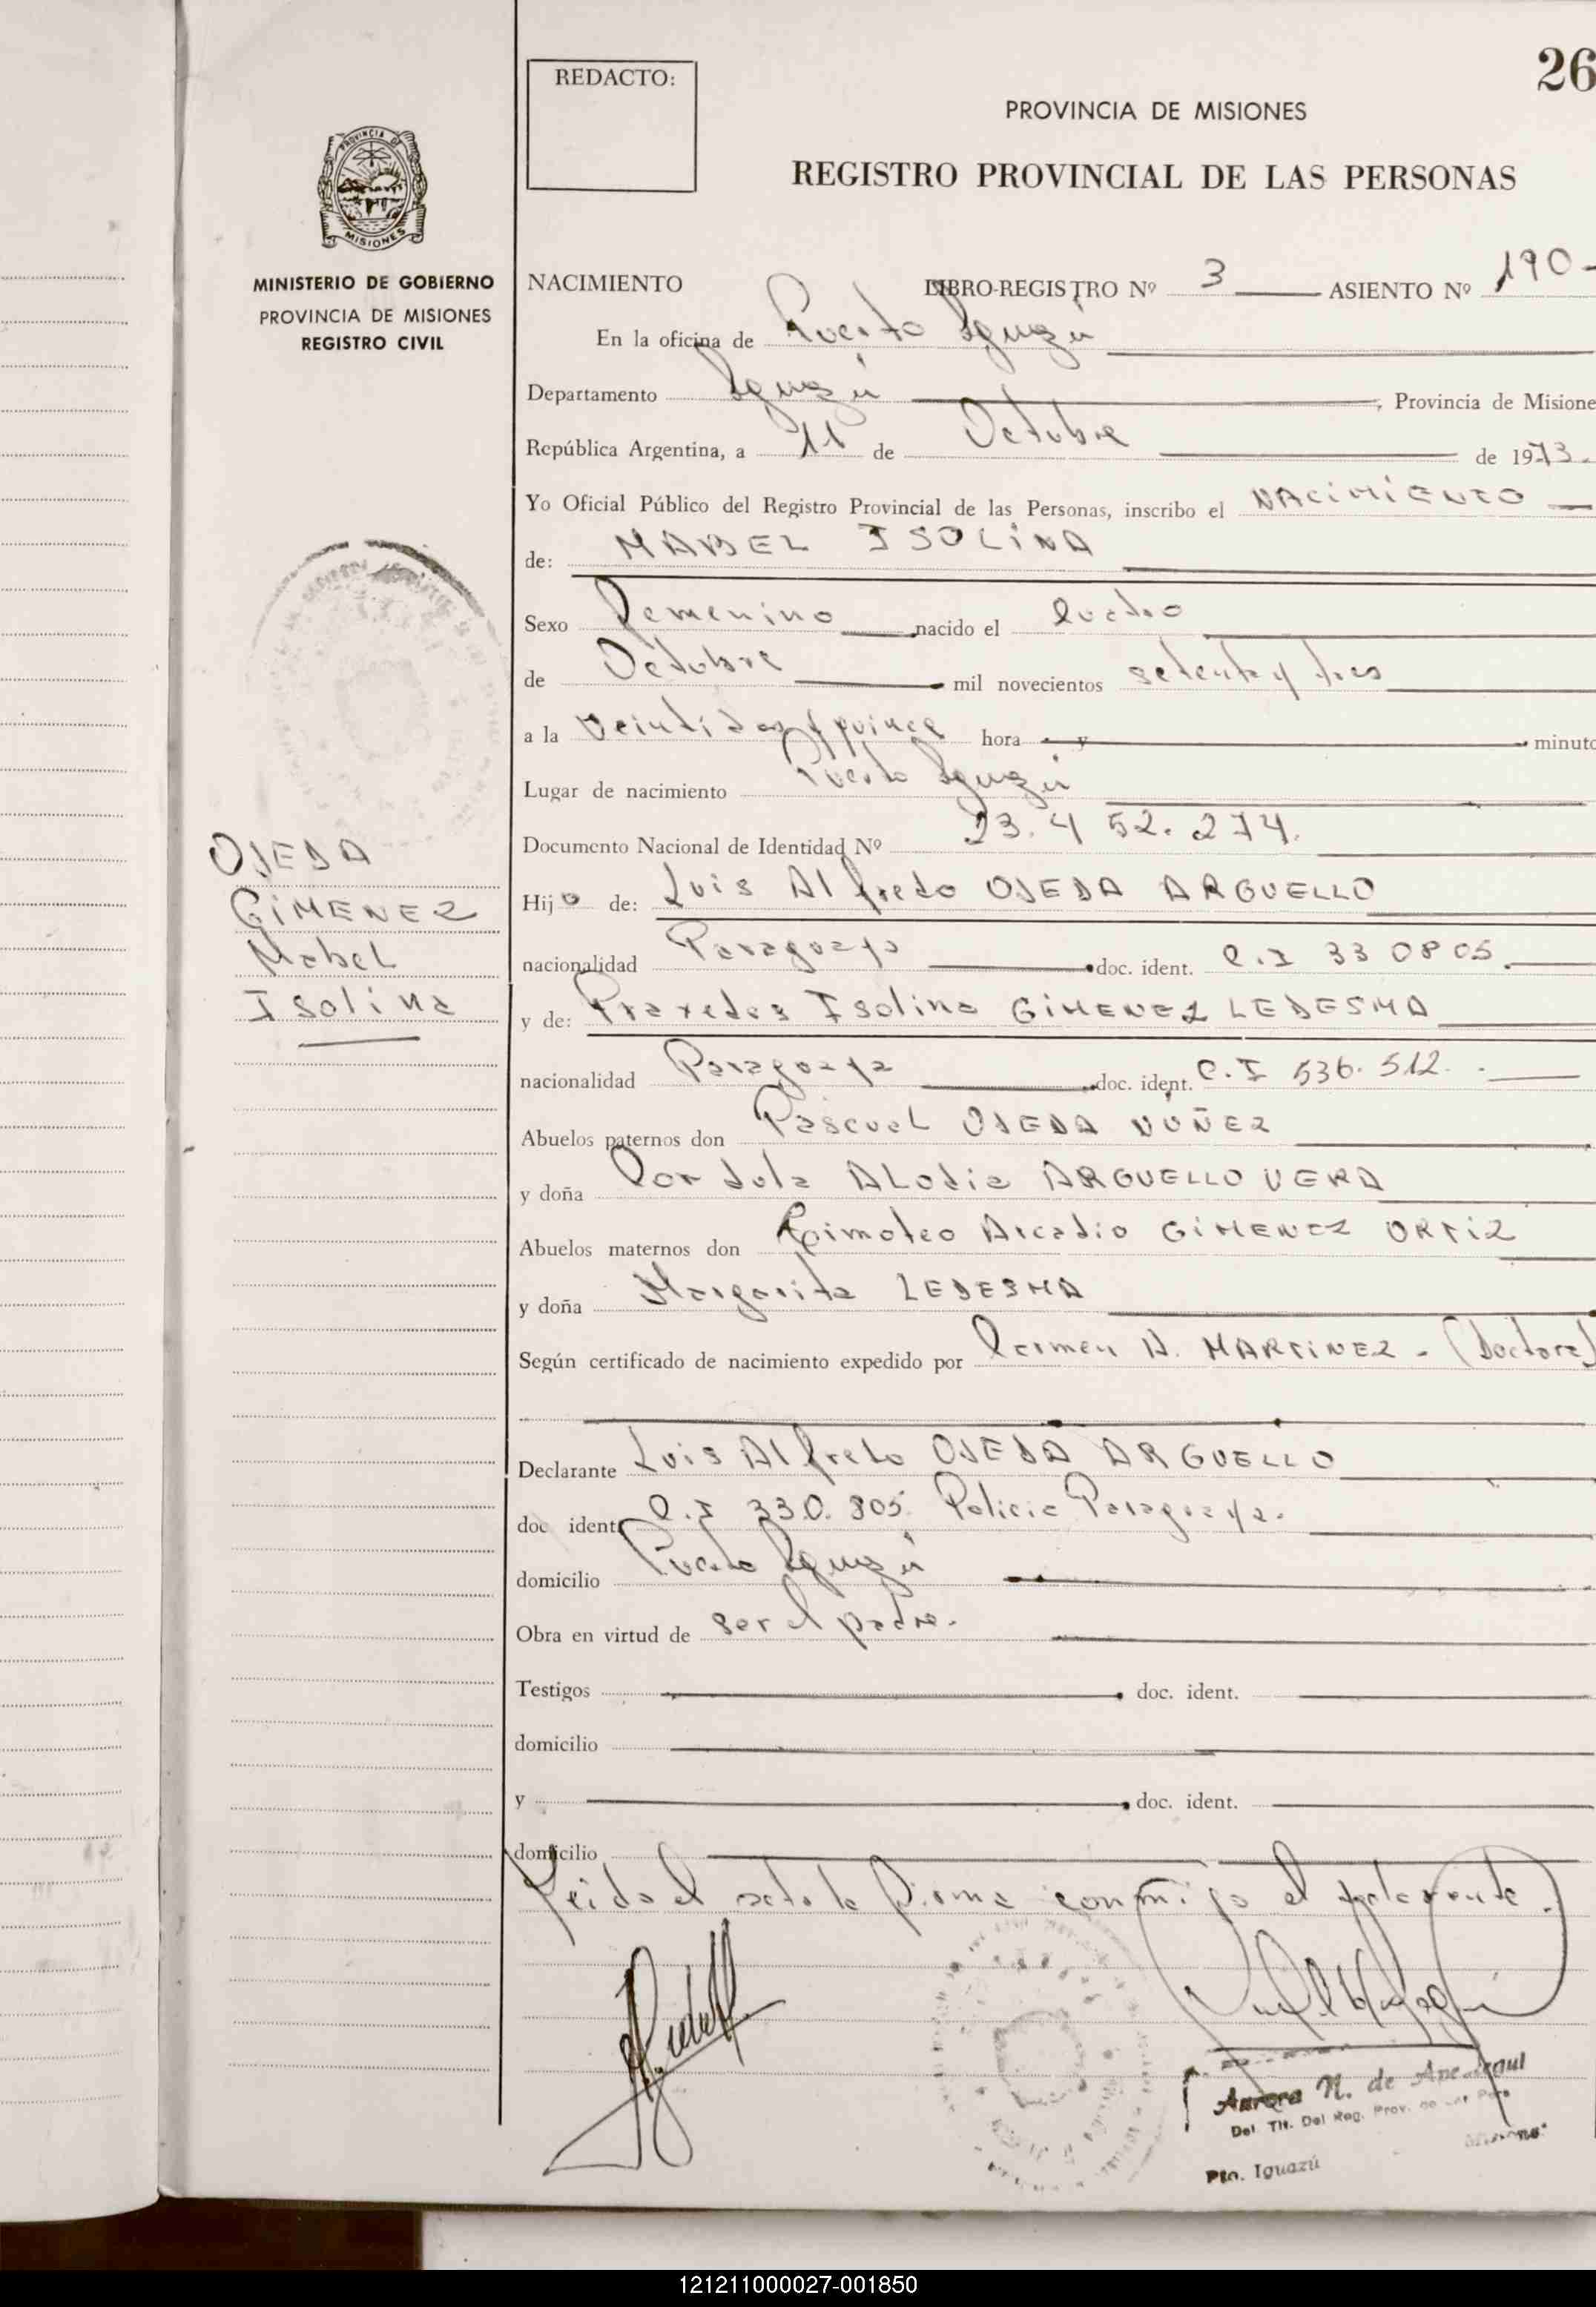 26
REDACTO:
PROVINCIA DE MISIONES
REGISTRO PROVINCIAL DE LAS PERSONAS
PROVINCIA DE
MISIONES
MINISTERIO DE GOBIERNO
PROVINCIA DE MISIONES
REGISTRO CIVIL
NACIMIENTO LIBRO-REGISTRO Nº 3 ASIENTO Nº 190-
En la oficina de Puerto Iguazú
Departamento Iguazú, Provincia de Misione
República Argentina, a 11 de Octubre de 1973.
Yo Oficial Público del Registro Provincial de las Personas, inscribo el NACIMIENTO
de: MABEL ISOLINA
Sexo Femenino nacido el Cuatro
de Octubre mil novecientos setenta y tres
a la veintidos y quince hora y minuto
Lugar de nacimiento Puerto Iguazú
Documento Nacional de Identidad Nº 23.452.274.
OJEDA
GIMENEZ
Mabel
Isolina
Hijo de: Luis Alfredo OJEDA ARGUELLO
nacionalidad Paraguayo doc. ident. C.I 330805.
y de: Praxedes Isolina GIMENEZ LEDESMA
nacionalidad Paraguaya doc. ident. C.I 536.512.
Abuelos paternos don Pascual OJEDA NUÑEZ
y doña Cordula ALodia ARGUELLO VERA
Abuelos maternos don Timoteo Arcadio GIMENEZ ORTIZ
y doña Margarita LEDESMA
Según certificado de nacimiento expedido por Carmen A. MARTINEZ - (Doctora)
Declarante Luis Alfredo OJEDA ARGUELLO
doc ident C.I 330.805. Policia Paraguaya.
domicilio Puerto Iguazú
Obra en virtud de ser el padre.
Testigos doc. ident.
domicilio
y doc. ident.
domicilio
Leida el acta la firma conmigo el declarante.
Aurora N. de
Del Tit. Del Reg. Prov. de
Pto. Iguazú
121211000027-001850